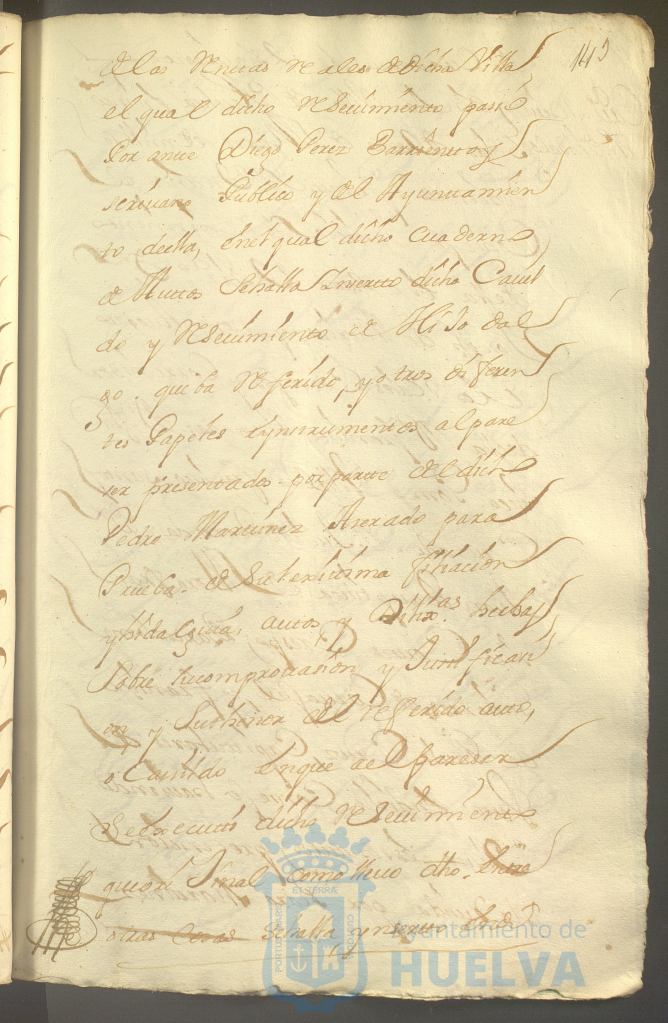 145
de las Rentas Reales de dicha Villa
el qual dicho Resevimiento passo
Por ante Diego Perez Barriento, es
scrivano Publico y del Ayuntamien
to della, enel qual dicho cuaderno
de Auttos sehalla Ynsertto dicho Cavil
do y Resevimiento de Hijo dal
go. que ba Referido, y otros diferen
tes Papeles e ynstrumentos al pare
ser presentados por parte del dicho
Pedro Martinez Aserado para
Prueba de su lexitima filiacion
y hidalguia, autos y Dilixas. hechas
sobre su comprovasion y Justificasi
on y su thenor del referido auto,
o Cavildo enque al Pareser
se executo dicho Resevimiento
que ori Jinal como llevo dho.
otras cosas sehalla ynserto
PORTUS MARIS ET TERRÆ CUSTODIO
Ayuntamiento de
HUELVA